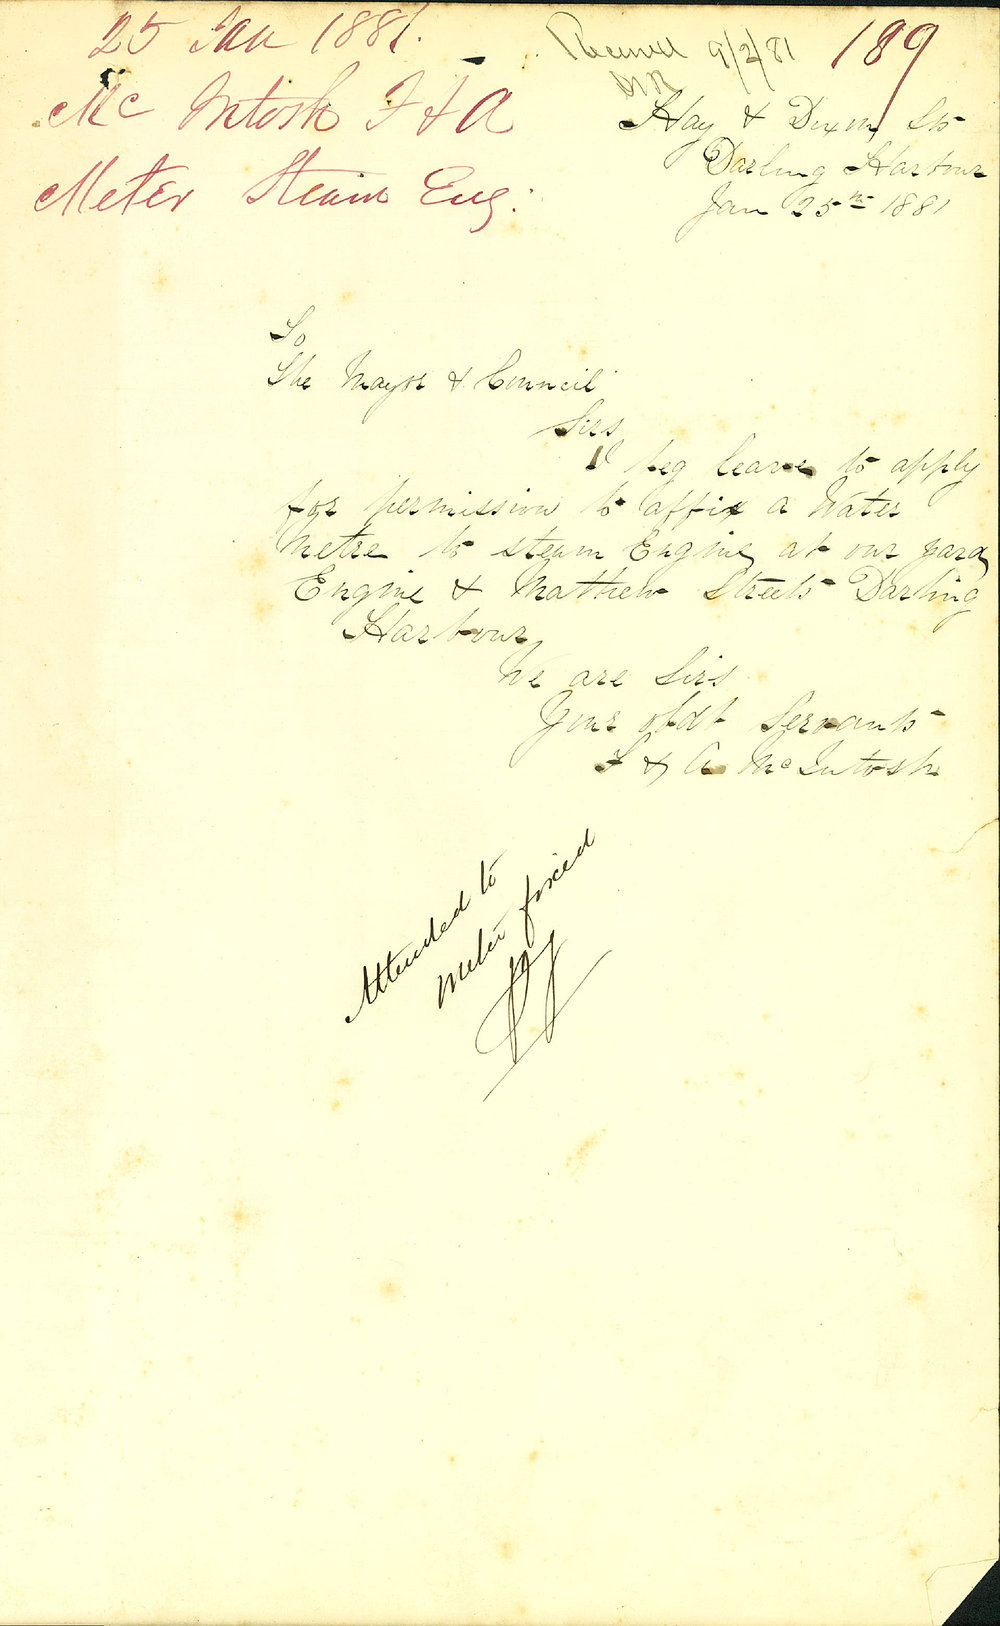 25 Jan 1881.
Mc Intosh F & A
Meter Steam Eng:
Received 9/2/81
189
Hay & Dixon Sts
Darling Harbour
Jan 25th 1881
To
The Mayor & Council
Sirs
I beg leave to apply
for permission to affix a Water
Metre to steam Engine at our yard
Engine & Mathew Streets Darling
Harbour
We are Sirs
Your obdt Servants
F & A McIntosh
Attended to
Meter fixed